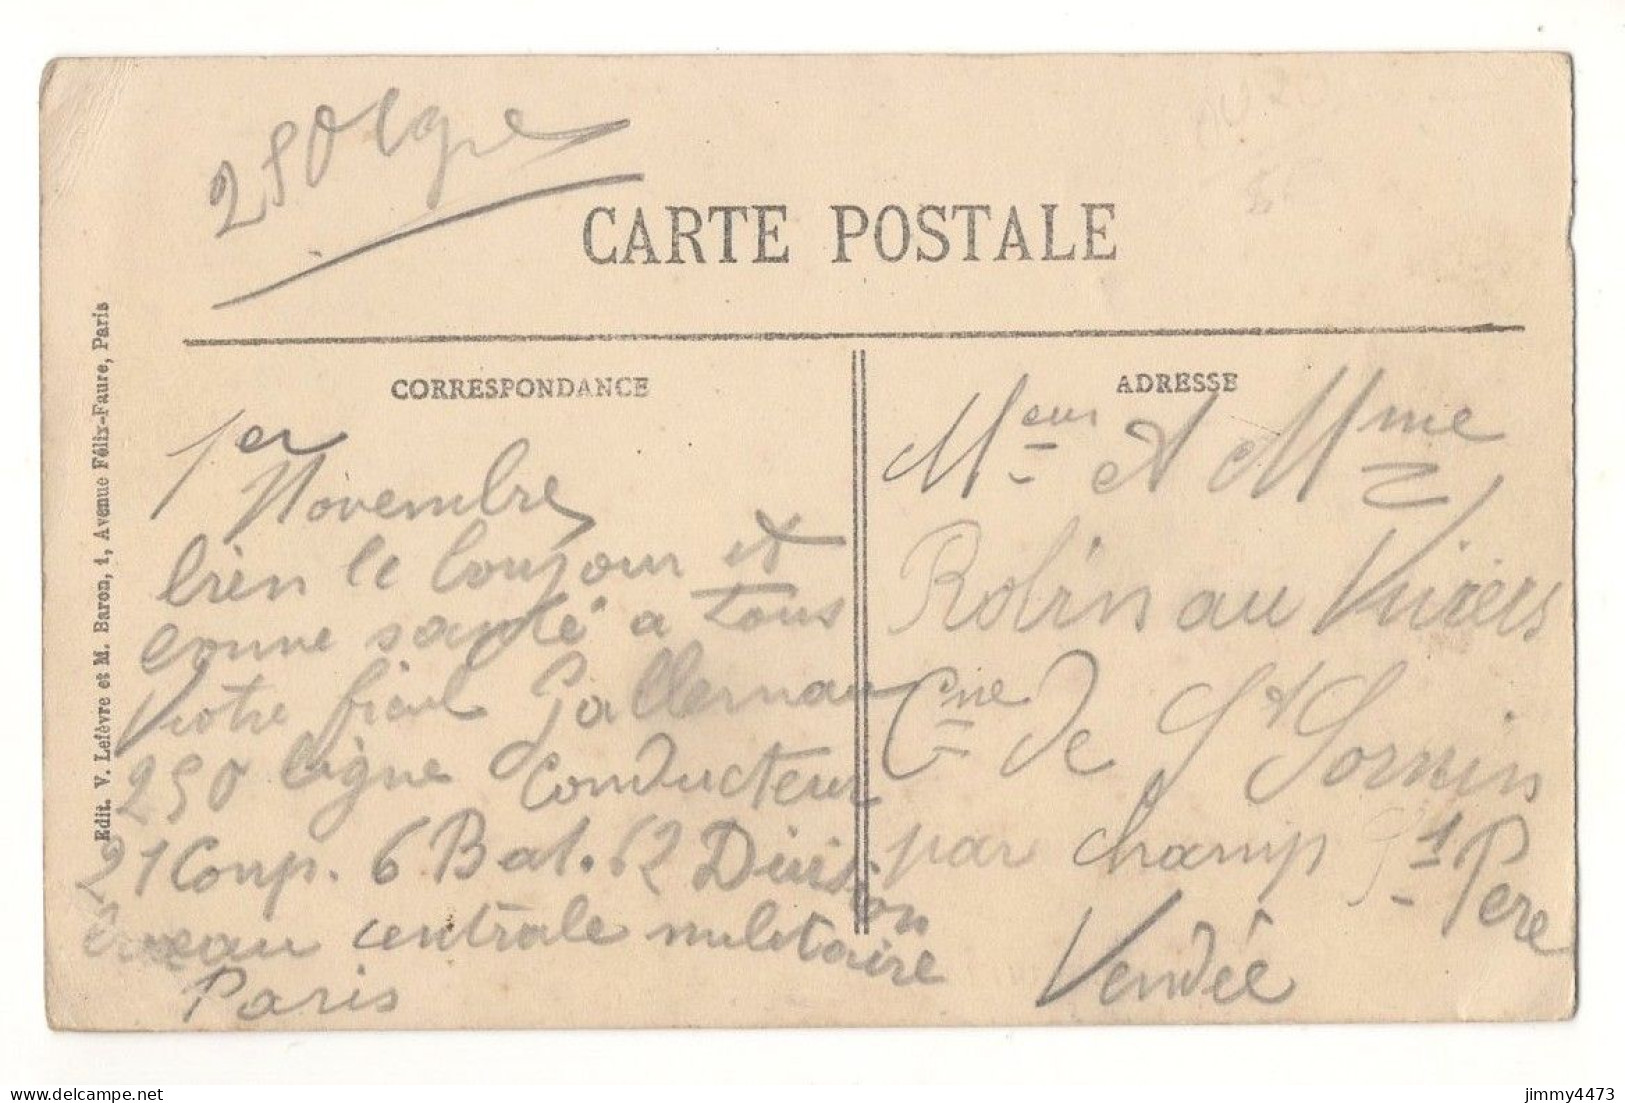 250 ligne
CARTE POSTALE
CORRESPONDANCE
1er
Novembre
bien le bonjour et
bonne santé a tous
Votre fieul Gallernau
250 ligne Conducteur
21 Comp. 6 Bat. 62 Division
bureau centrale militaire
Paris
ADRESSE
Meur et Mme
Robin au Viviers
Cne de St Sornin
par champ St Pere
Vendée
Edit. V. Lefèvre et M. Baron, 1, Avenue Félix-Faure, Paris
jimmy4473